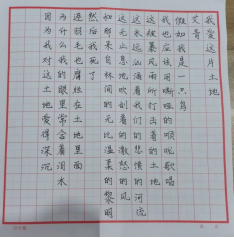 我爱这片土地
艾青
假如我是一只鸟
我也应该用嘶哑的喉咙歌唱
这被暴风雨所打击着的土地
这永远汹涌着我们的悲愤的河流
这无止息地吹刮着的激怒的风
和那来自林间的无比温柔的黎明
然后我死了
连羽毛也腐烂在土地里面
为什么我的眼里常含着泪水
因为我对这土地爱得深沉